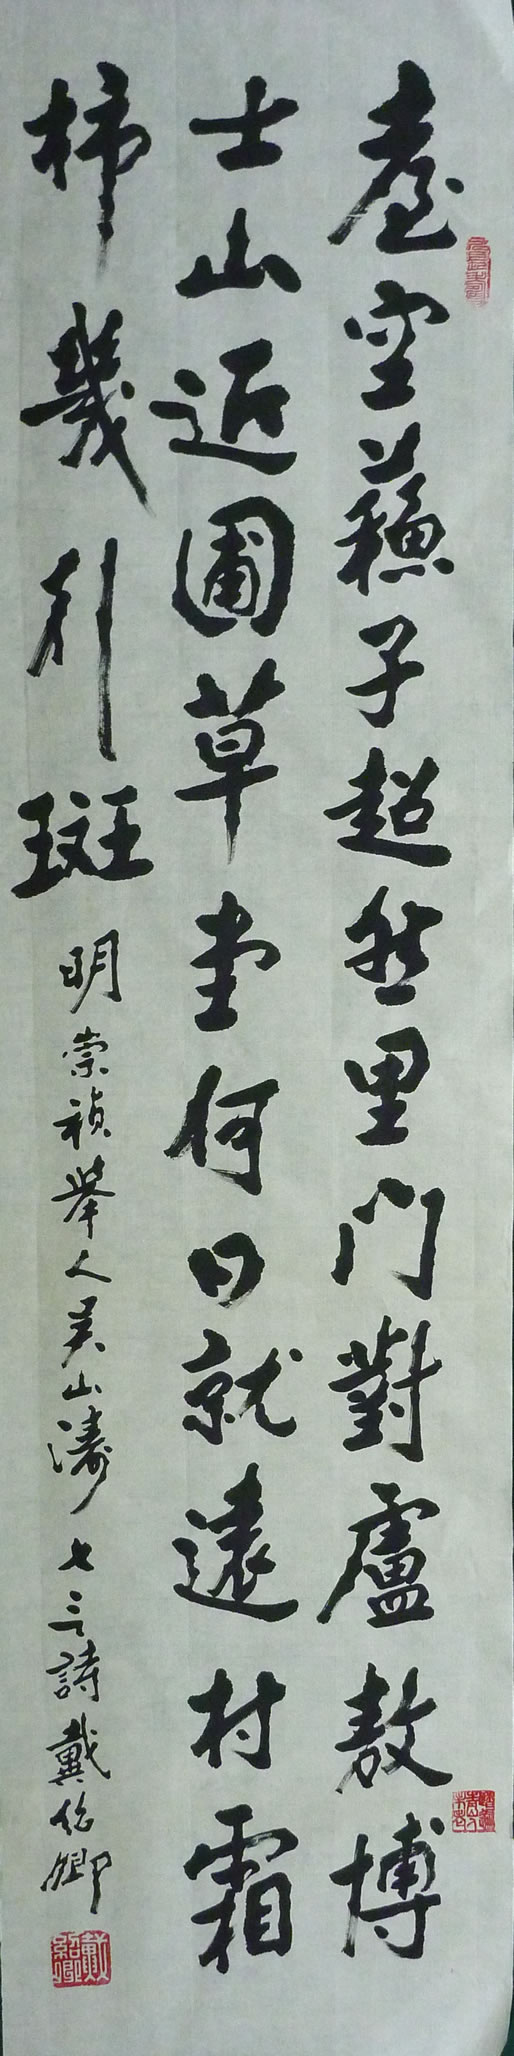 臺空蘓子超然里門對盧敖博
士山近圃草堂何日就遠村霜
柿幾行斑
明崇禎舉人吳山濤七言詩戴紹卿